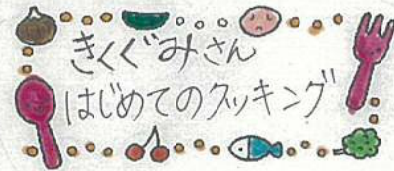 きくぐみさん
はじめてのクッキング